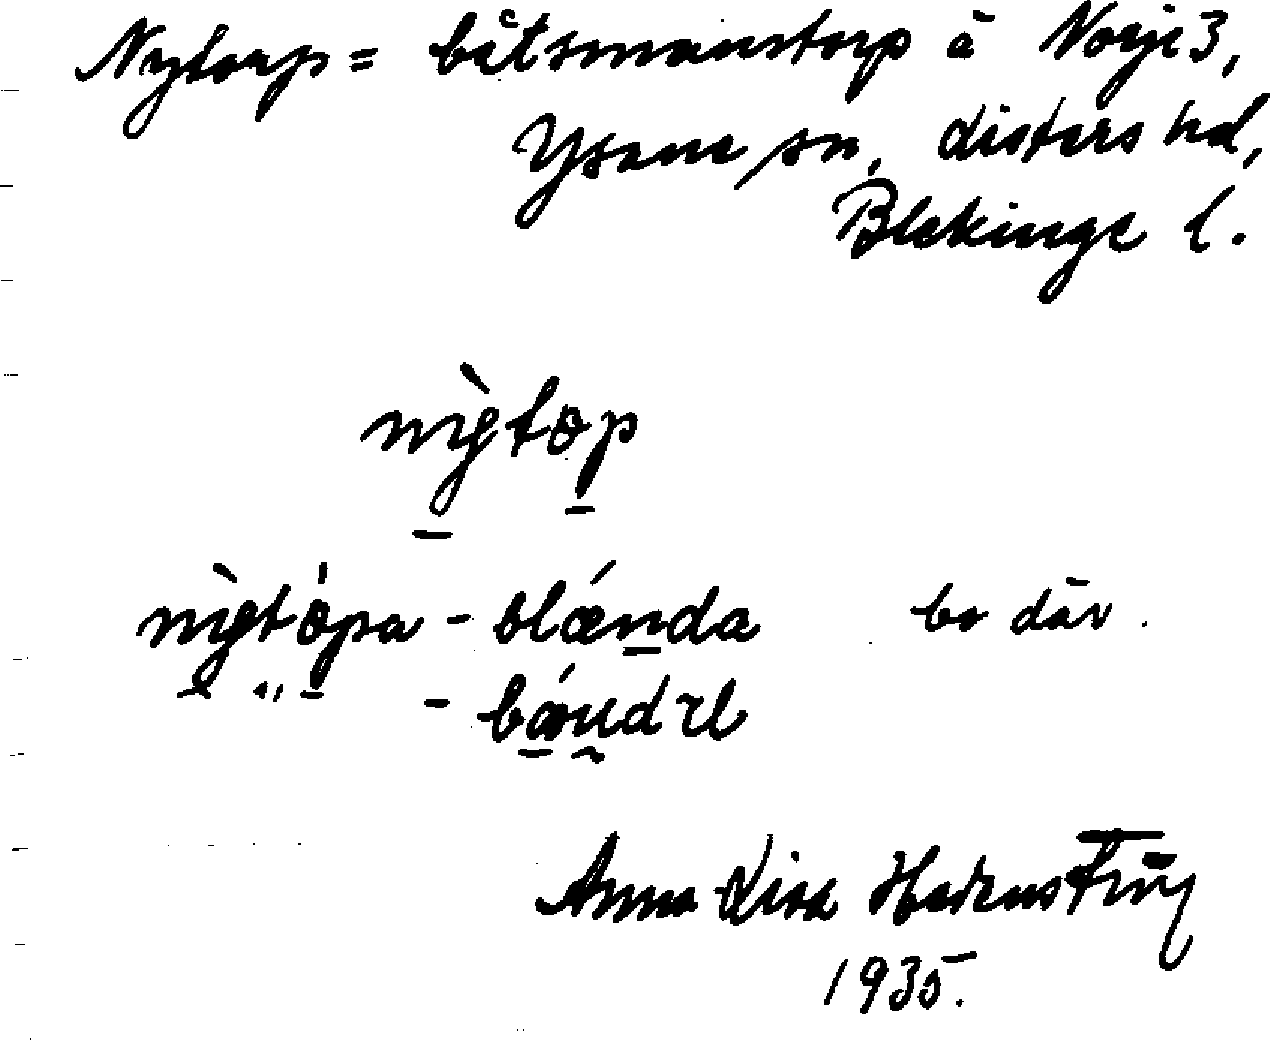 Nytorp = båtsmanstorp å Norje 3,
Ysane sn, Listers hd,
Blekinge l.
nỳtop
nỳtópa - olǽnda bo där.
- bǿndɪl
Anna Lisa
1935.